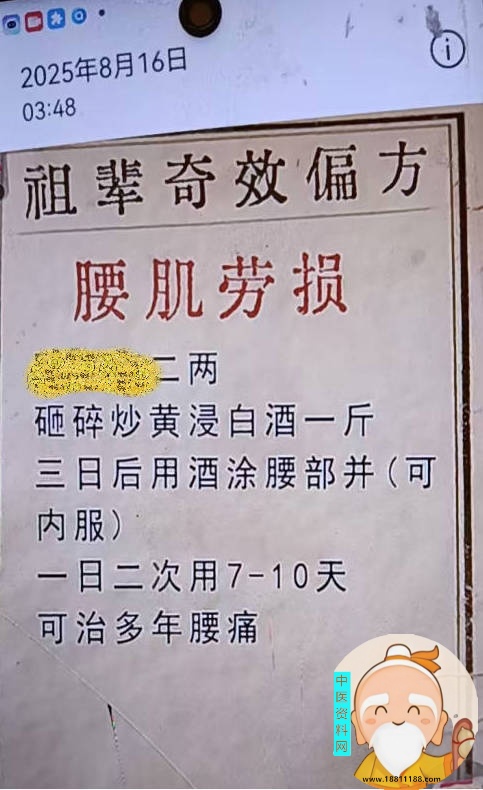 2025年8月16日
03:48
祖辈奇效偏方
腰肌劳损
二两
砸碎炒黄浸白酒一斤
三日后用酒涂腰部并(可
内服)
一日二次用7-10天
可治多年腰痛
中医资料网
www.18811188.com